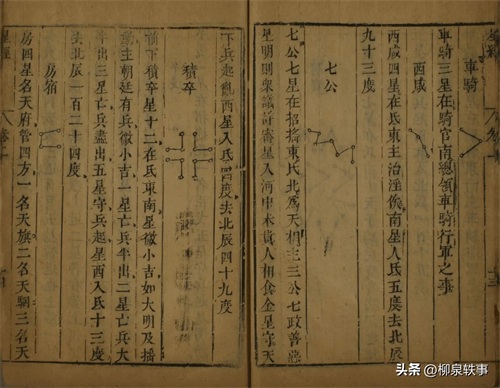 車騎
車騎三星在騎官南總領車騎行軍之事
西咸
西咸四星在氐東主治淫佚南星入氐五度去北辰
九十三度
七公
七公七星在招搖東氐北為天相主三公七政善惡
星明則衆議詳審星入河中米貴人相食金星守天
下兵起亂西星入氐四度去北辰四十九度
積卒
積卒星十二在氐東南星微小吉如大明及搖
動主朝廷有兵微小吉一星亡兵半出二星亡兵大
半出三星亡兵盡出五星守兵起星西入氐十三度
去北辰一百二十四度
房宿
房四星名天府管四方一名天旗二名天駟三名天
头条 @柳泉轶事